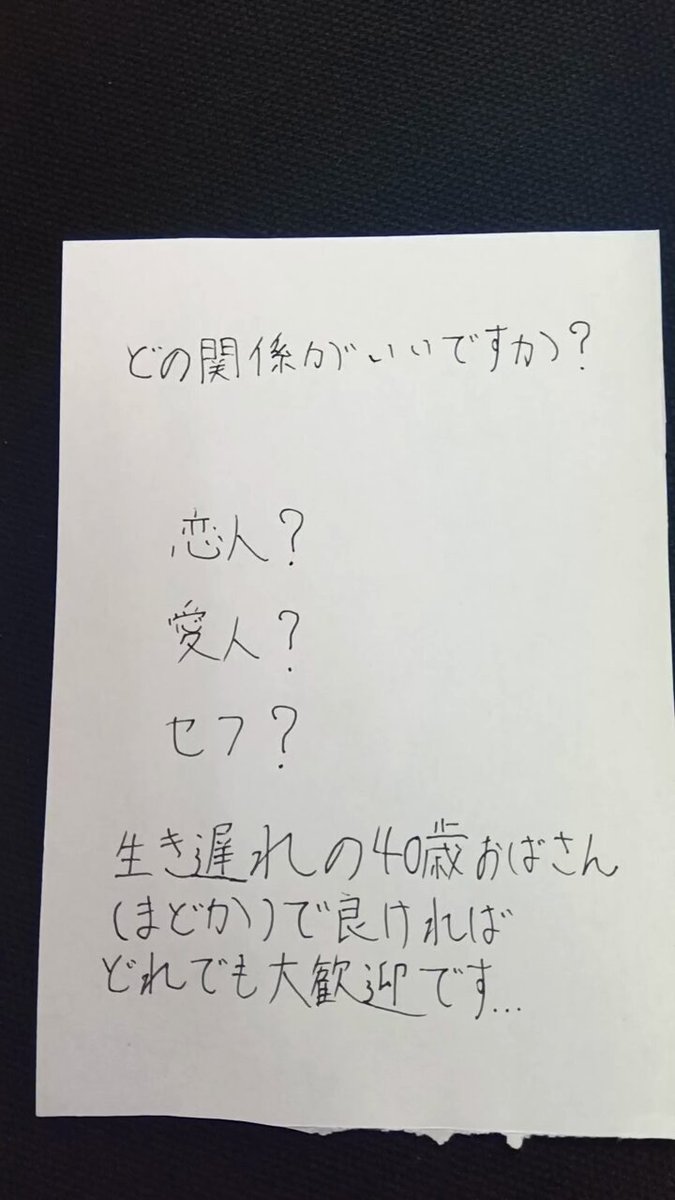 どの関係がいいですか?
恋人?
愛人?
セフ?
生き遅れの40歳おばさん
(まどか)で良ければ
どれでも大歓迎です...